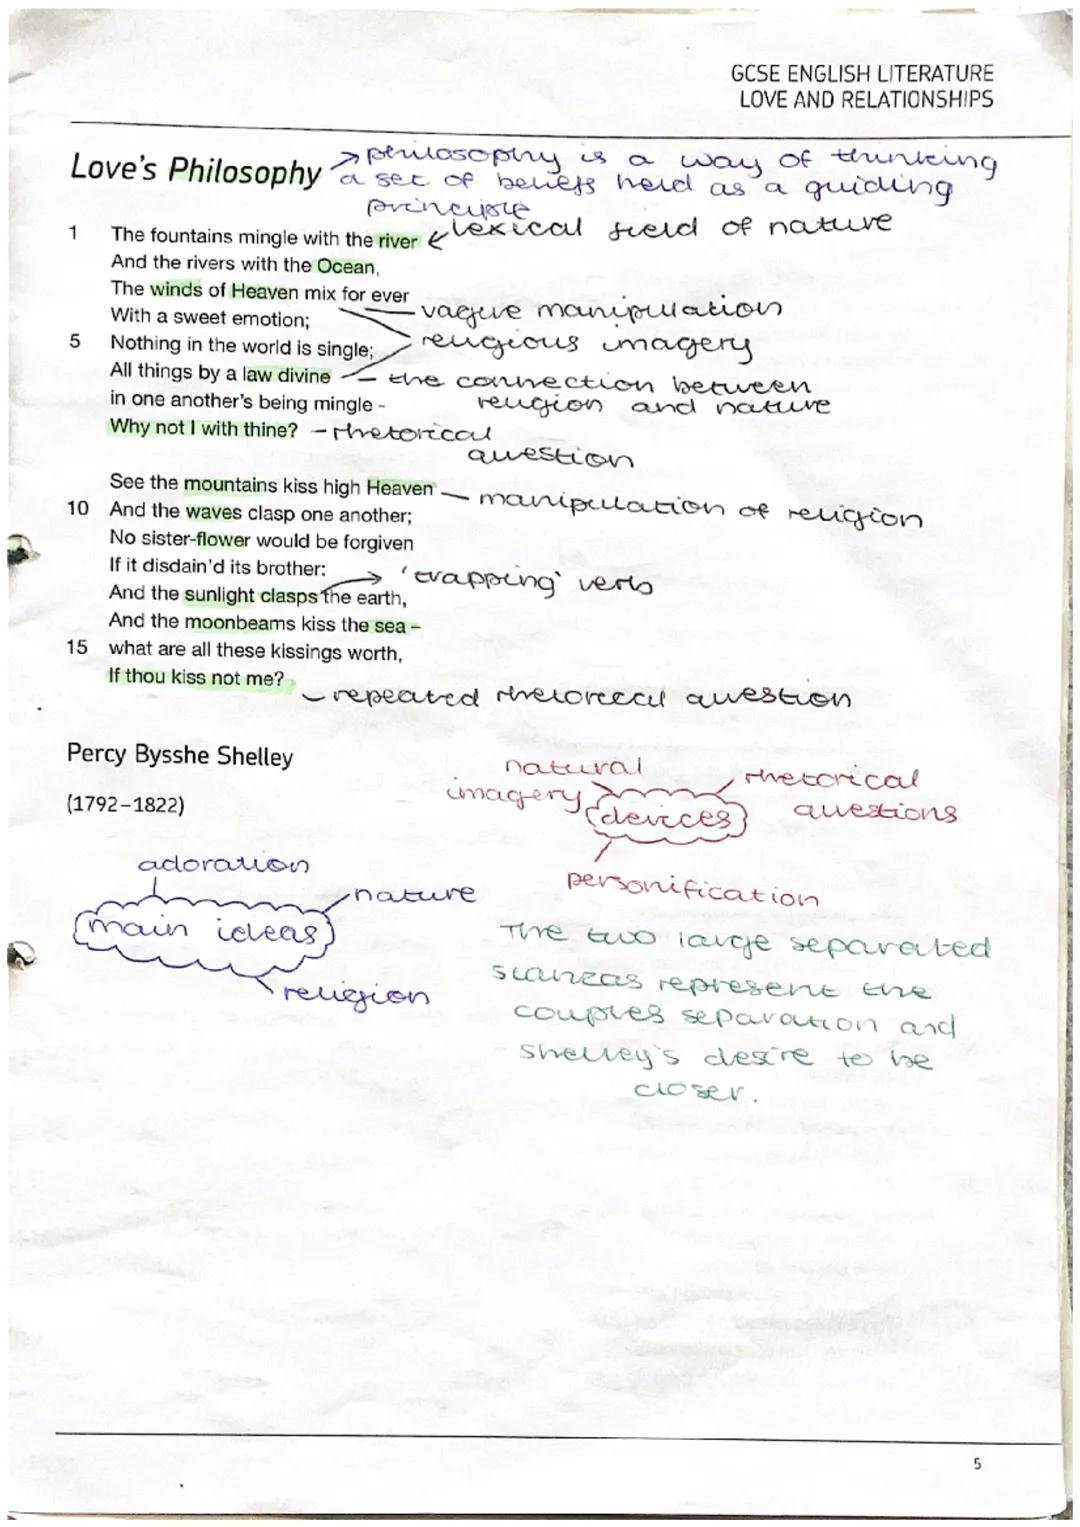 GCSE ENGLISH LITERATURE
LOVE AND RELATIONSHIPS
Love's Philosophy
→ philosophy is a way of thinking
a set of beliefs held as a guiding
principle
1 The fountains mingle with the river
lexical field of nature
And the rivers with the Ocean,
The winds of Heaven mix for ever
With a sweet emotion;
vague manipulation
5 Nothing in the world is single;
religious imagery
All things by a law divine
– the connection between
religion and nature
in one another's being mingle -
Why not I with thine?
– rhetorical
question
See the mountains kiss high Heaven
– manipulation of religion
10 And the waves clasp one another;
No sister-flower would be forgiven
If it disdain'd its brother:
→ 'trapping' verb
And the sunlight clasps the earth,
And the moonbeams kiss the sea –
15 what are all these kissings worth,
If thou kiss not me?
– repeated rhetoreccl question
Percy Bysshe Shelley
(1792–1822)
natural
imagery
devices
rhetorical
questions
personification
adoration
nature
main ideas
religion
The two large separated
stanzas represent the
couples separation and
Shelley's desire to be
closer.
5